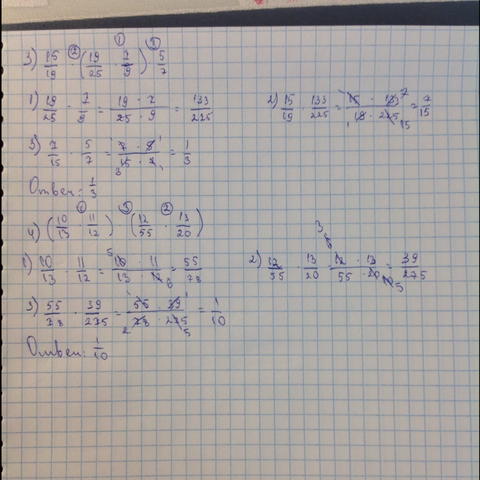 3) 15/19 · (19/25 · 7/9) · 5/7
1) 19/25 · 7/9 = 19 · 7 / 25 · 9 = 133/225
2) 15/19 · 133/225 = 15 · 133 / 19 · 225 = 7/15
3) 7/15 · 5/7 = 7 · 5 / 15 · 7 = 1/3
Ответ: 1/3
4) (10/13 · 11/12) · (12/55 · 13/20)
1) 10/13 · 11/12 = 10 · 11 / 13 · 12 = 55/78
2) 12/55 · 13/20 = 12 · 13 / 55 · 20 = 39/275
3) 55/78 · 39/275 = 55 · 39 / 78 · 275 = 1/10
Ответ: 1/10